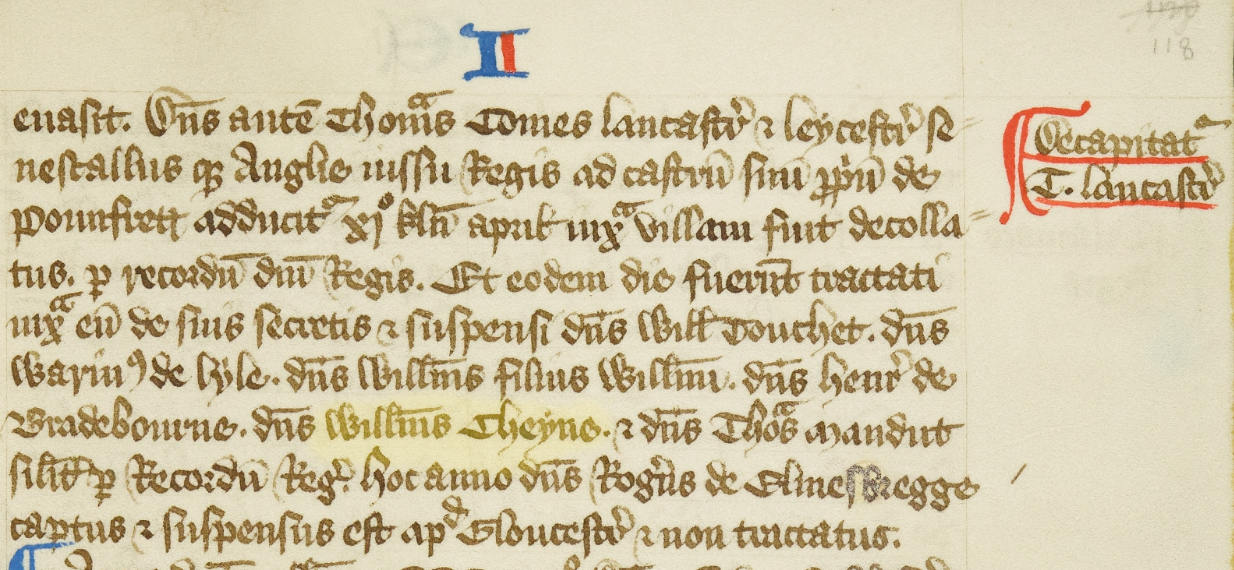 II
118
euasit. Dñs autē Thomas Comes lancastr̉ ⁊ leycestr̉ se=
nescallus qꝫ Anglie iussu Regis ad castrū suū ꝓp̉ū de
Pountfrett adducitᵃ xjº kln̄ april iuxᵃ villam fuit decolla=
tus. ꝑ recordū dn̄i Regis. Et eodem die fuerūt tractati
iuxᵃ eū de suis secretis ⁊ suspensi dn̄s Will̄ Touchet. dn̄s
Warinꝰ de lyle. dn̄s Willm̄s filius Willmi. dn̄s henr̉ de
Bradebourne. dn̄s Willm̄s Cheyne. ⁊ dn̄s Thoᵃs Mandut
silit̄ ꝑ Recordū Reg̉. hoc anno dn̄s Rog̉us de Elmesbregge
captus ⁊ suspensus est apᵈ Gloucestr̉ ⁊ non tractatus.
Decapitatᵃ
T. lancastr̉